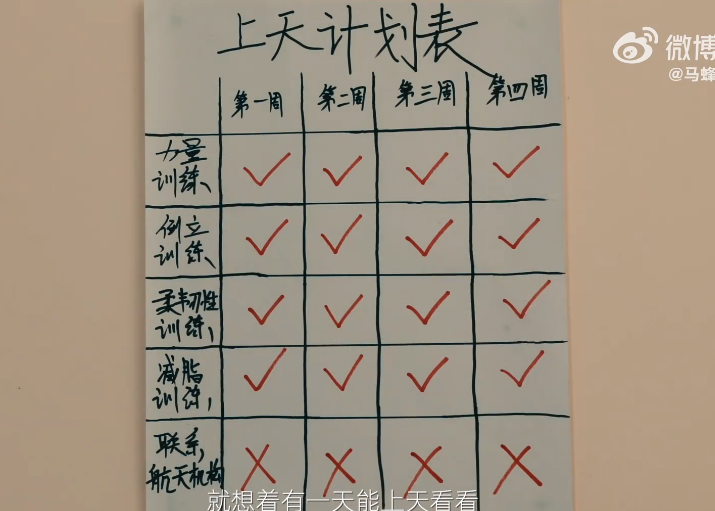 上天计划表
微博
@马蜂
第一周 第二周 第三周 第四周
力量
训练、 ✓ ✓ ✓ ✓
倒立
训练、 ✓ ✓ ✓ ✓
柔韧性
训练、 ✓ ✓ ✓ ✓
减脂
训练, ✓ ✓ ✓ ✓
联系,
航天机构 ✗ ✗ ✗ ✗
就想着有一天能上天看看